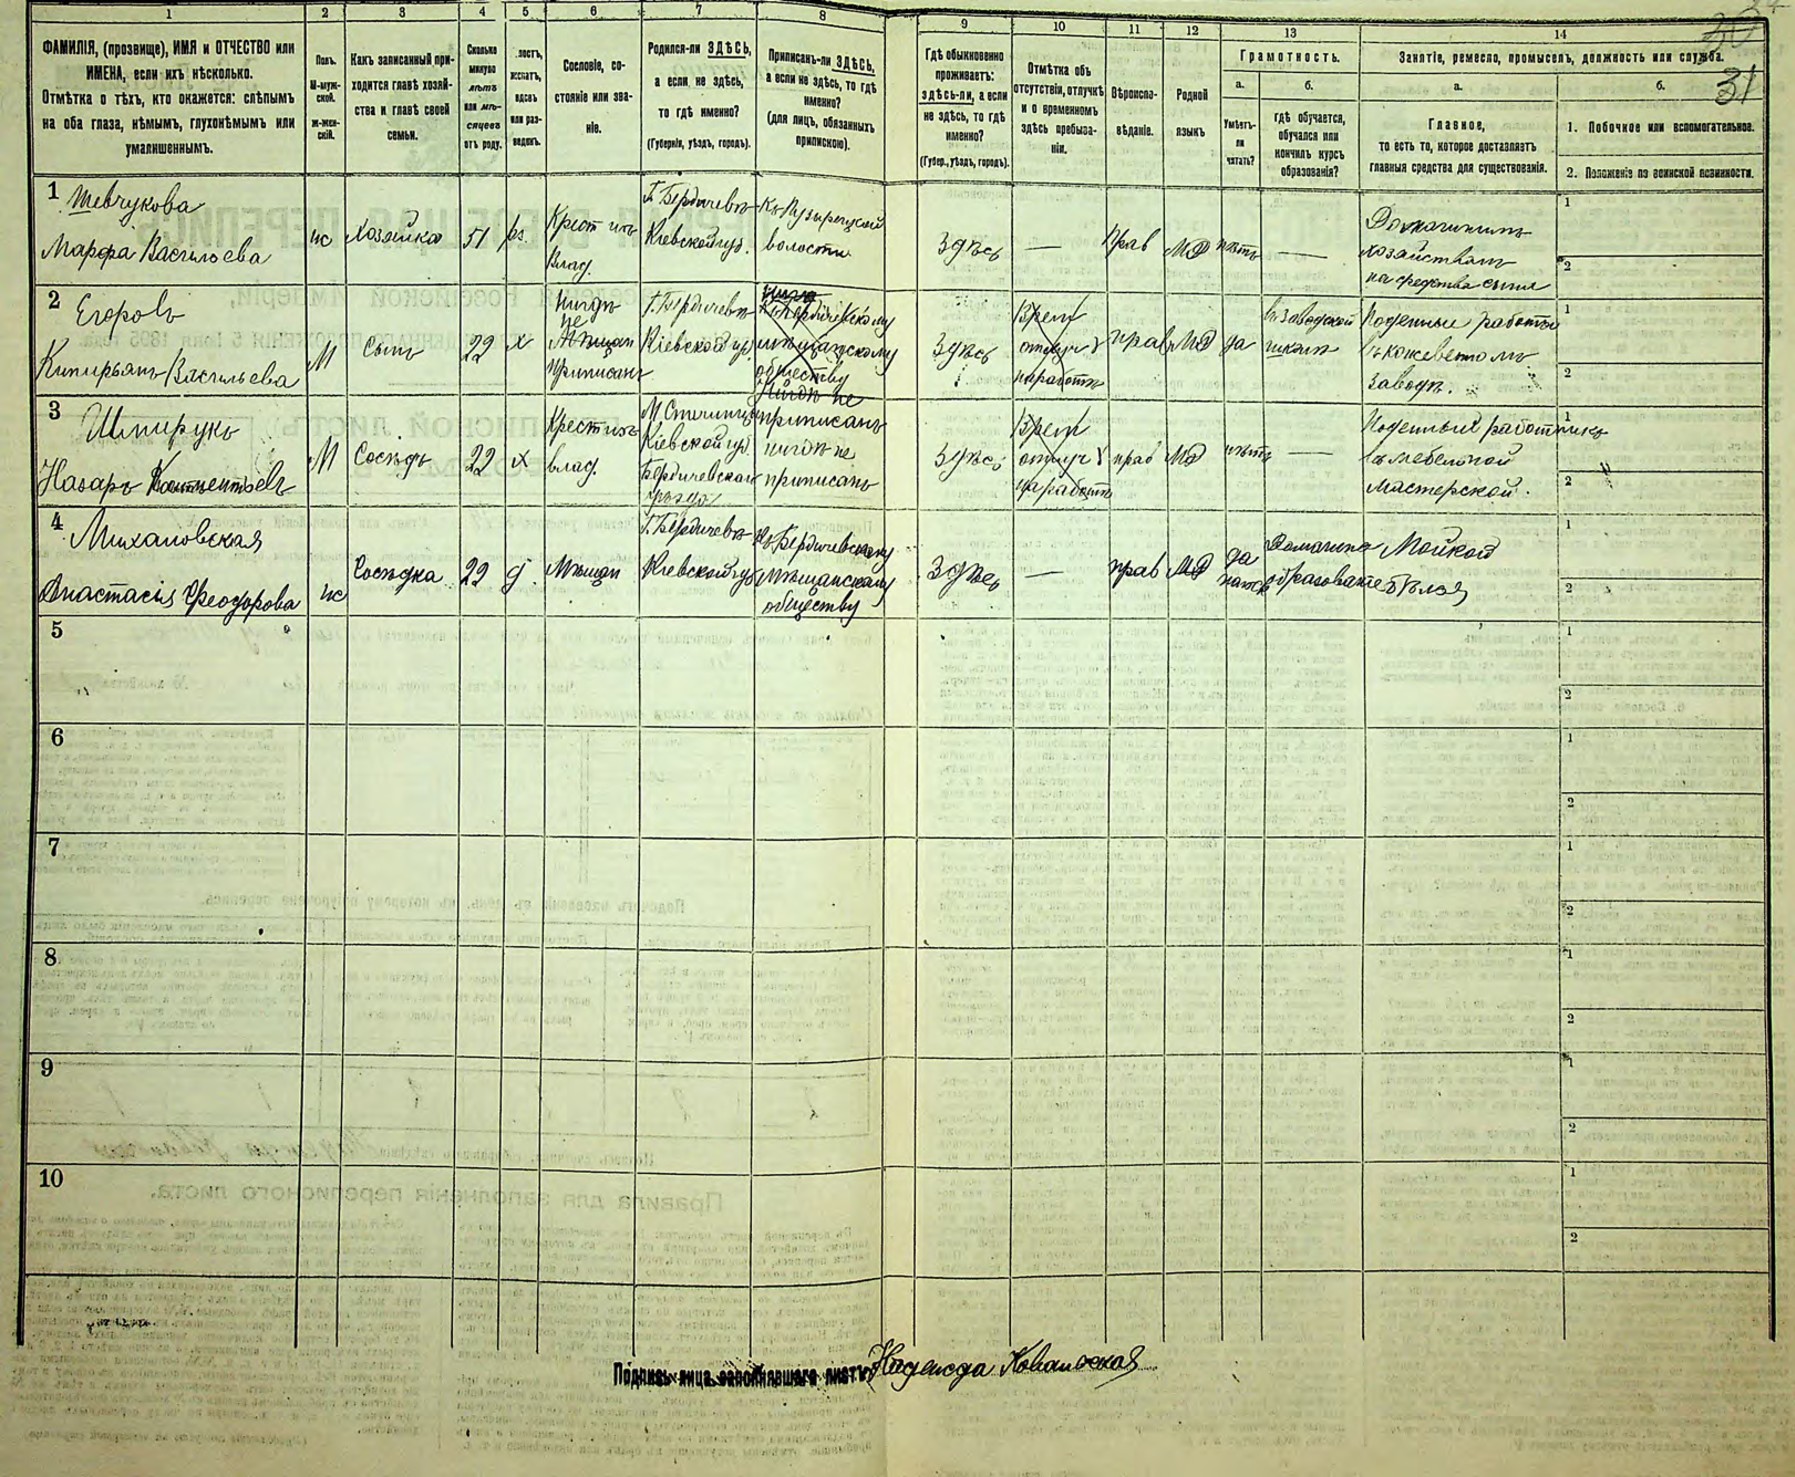 1
2
3
4
5
6
7
8
9
10
11
12
13
14
31
ФАМИЛІЯ, (прозвище), ИМЯ и ОТЧЕСТВО или
ИМЕНА, если ихъ нѣсколько.
Отмѣтка о тѣхъ, кто окажется: слѣпымъ
на оба глаза, нѣмымъ, глухонѣмымъ или
умалишеннымъ.
Полъ.
М-муж-
ской.
Ж-жен-
скій.
Какъ записанный при-
ходится главѣ хозяй-
ства и главѣ своей
семьи.
Сколько
минуло
лѣтъ
или мѣ-
сяцевъ
отъ роду.
лостъ,
женатъ,
вдовъ
или раз-
веденъ.
Сословіе, со-
стояніе или зва-
ніе.
Родился-ли ЗДѢСЬ,
а если не здѣсь,
то гдѣ именно?
(Губернія, уѣздъ, городъ).
Приписанъ-ли ЗДѢСЬ,
а если не здѣсь, то гдѣ
именно?
(для лицъ, обязанныхъ
припискою).
Гдѣ обыкновенно
проживаетъ:
здѣсь-ли, а если
не здѣсь, то гдѣ
именно?
(Губер., уѣздъ, городъ).
Отмѣтка объ
отсутствіи, отлучкѣ
и о временномъ
здѣсь пребыва-
ніи.
Вѣроиспо-
вѣданіе.
Родной
языкъ
Грамотность.
а.
Умѣетъ-
ли
читать?
б.
гдѣ обучается,
обучался или
кончилъ курсъ
образованія?
Занятіе, ремесло, промыселъ, должность или служба.
а.
Главное,
то есть то, которое доставляетъ
главныя средства для существованія.
б.
1. Побочное или вспомогательное.
2. Положеніе по воинской повинности.
1 Шевчукова
Марфа Васильева
ж
Хозяйка
51
Крест изъ
Влад.
Г. Бердичевъ
Кіевской губ.
Къ Пузырецкой
волости
Здѣсь
—
прав
МР
нѣтъ
—
Домашнимъ
хозяйствомъ
на средства сына
1
2
2 Егоровъ
Кипріянъ Васильева
М
Сынъ
22
х
Нигдѣ
не
Мѣщан
приписанъ
Г. Бердичевъ
Кіевской губ.
Къ Бердичевскому
мѣщанскому
обществу
Здѣсь
Врем
отлуч
на работѣ
прав
МР
да
въ Заводской
школѣ
Поденные работы
въ кожевенномъ
заводѣ.
1
2
3 Шпирукъ
Назаръ
М
Сосѣдъ
22
х
Крест изъ
влад.
Кіевской губ
Бердичевскаго
уѣзда
Нигдѣ не
приписанъ
нигдѣ не
приписанъ
Здѣсь
Врем
отлуч
на работѣ
прав
МР
нѣтъ
—
Поденный работникъ
въ мебельной
мастерской.
1
2
4 Михаловская
Анастасія Феодорова
ж
Сосѣдка
22
д
Мѣщан
Г. Бердичевъ
Кіевской губ
Къ Бердичевскому
Мѣщанскому
обществу
Здѣсь
—
прав
МР
да
Домашнее
образованіе
Мойкой
бѣлья
1
2
5
1
2
6
1
2
7
1
2
8
1
2
9
1
2
10
1
2
Подпись лица заполнявшаго листъ: Надежда Ковальская